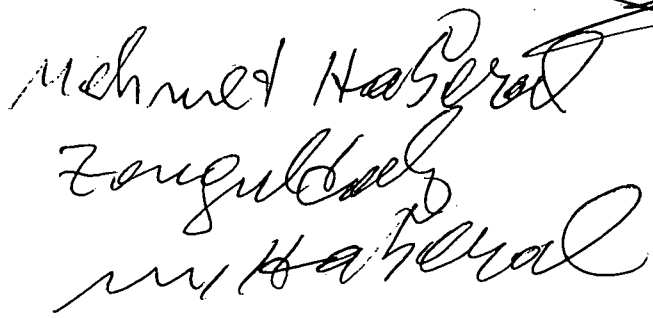 Mehmet Haberal
Zonguldak
M. Haberal